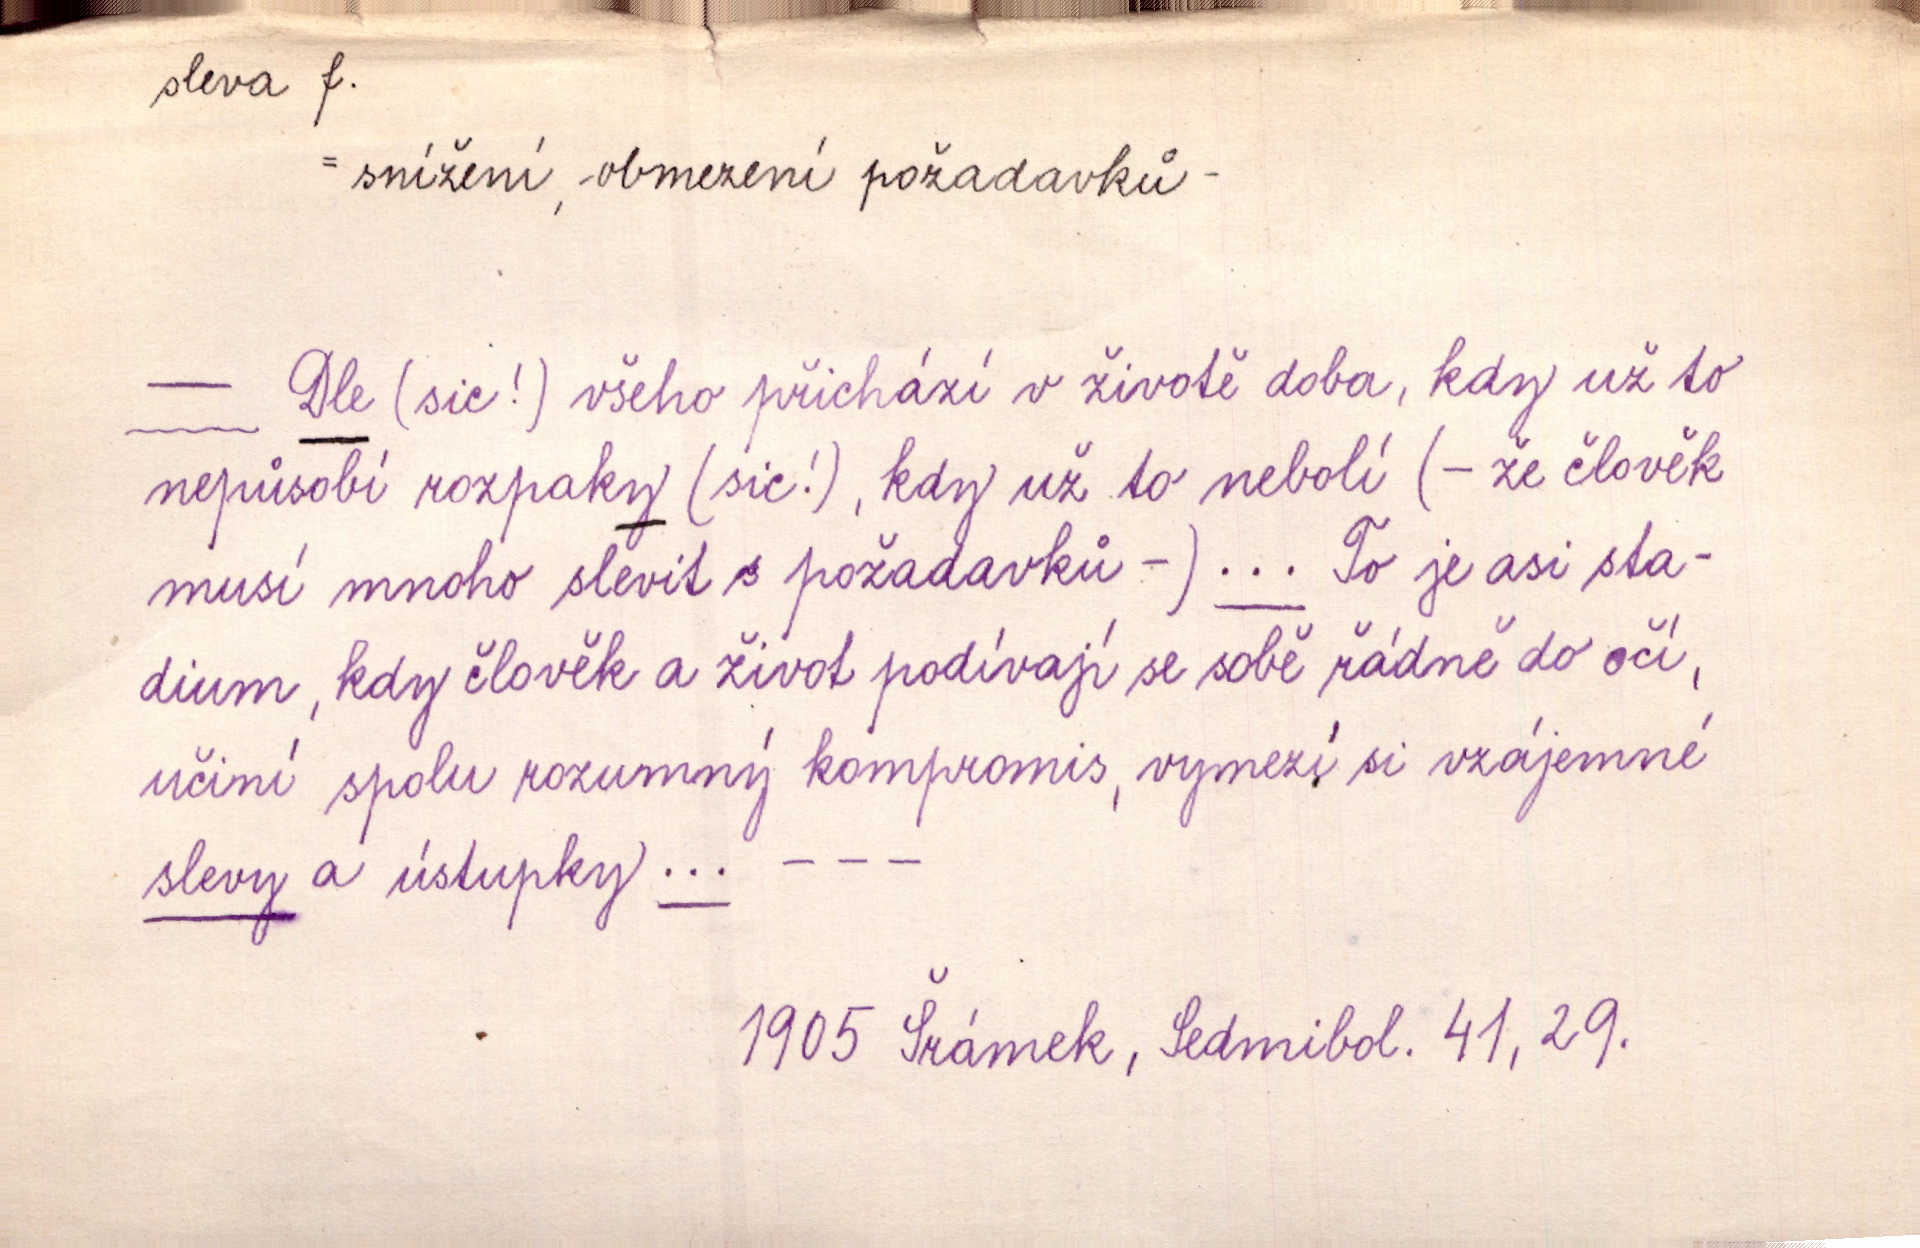 sleva f.
= snížení, obmezení požadavků -
— Dle (sic!) všeho přichází v životě doba, kdy už to
nepůsobí rozpaky (sic!), kdy už to nebolí (– že člověk
musí mnoho slevit s požadavků –) ... To je asi sta-
dium, kdy člověk a život podívají se sobě řádně do očí,
učiní spolu rozumný kompromis, vymezí si vzájemné
slevy a ústupky ... – – –
1905 Šrámek, Sedmibol. 41, 29.